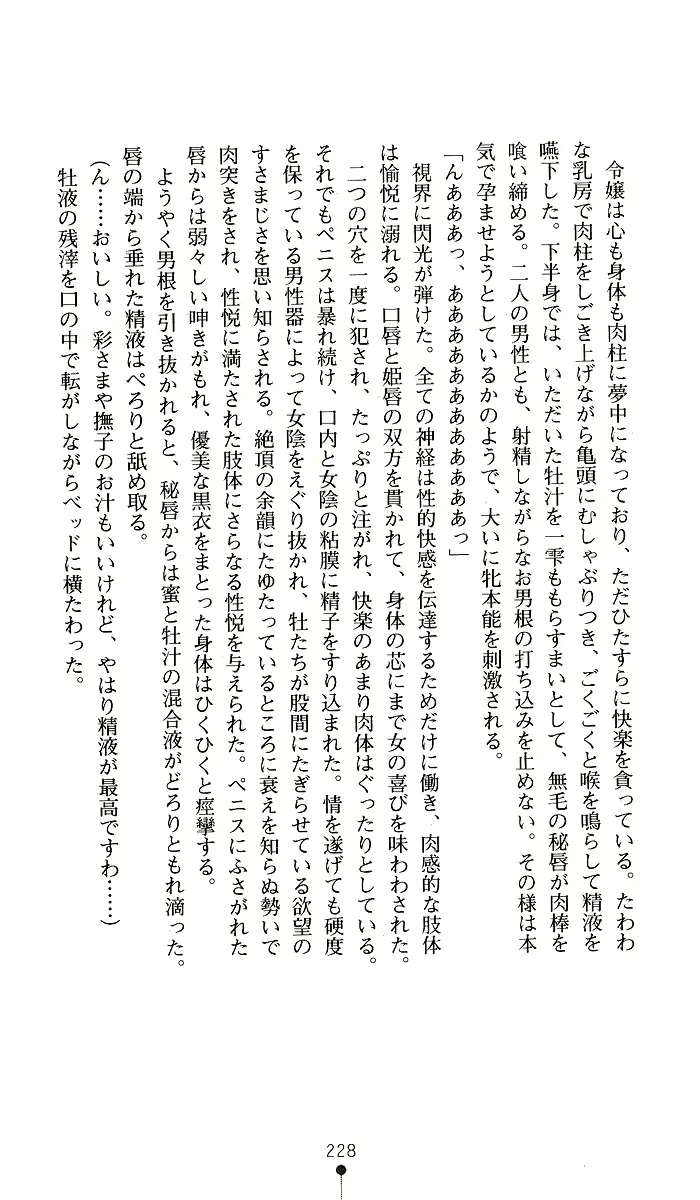 令嬢は心も身体も肉柱に夢中になっており、ただひたすらに快楽を貪っている。たわわ
な乳房で肉柱をしごき上げながら亀頭にむしゃぶりつき、ごくごくと喉を鳴らして精液を
嚥下した。下半身では、いただいた牡汁を一雫ももらすまいとして、無毛の秘唇が肉棒を
喰い締める。二人の男性とも、射精しながらなお男根の打ち込みを止めない。その様は本
気で孕ませようとしているかのようで、大いに牝本能を刺激される。
「んあああっ、ああああああああああああっ」
　視界に閃光が弾けた。全ての神経は性的快感を伝達するためだけに働き、肉感的な肢体
は愉悦に溺れる。口唇と姫唇の双方を貫かれて、身体の芯にまで女の喜びを味わわされた。
　二つの穴を一度に犯され、たっぷりと注がれ、快楽のあまり肉体はぐったりとしている。
それでもペニスは暴れ続け、口内と女陰の粘膜に精子をすり込まれた。情を遂げても硬度
を保っている男性器によって女陰をえぐり抜かれ、牡たちが股間にたぎらせている欲望の
すさまじさを思い知らされる。絶頂の余韻にたゆたっているところに衰えを知らぬ勢いで
肉突きをされ、性悦に満たされた肢体にさらなる性悦を与えられた。ペニスにふさがれた
唇からは弱々しい呻きがもれ、優美な黒衣をまとった身体はひくひくと痙攣する。
　ようやく男根を引き抜かれると、秘唇からは蜜と牡汁の混合液がどろりともれ滴った。
唇の端から垂れた精液はぺろりと舐め取る。
（ん……おいしい。彩さまや撫子のお汁もいいけれど、やはり精液が最高ですわ……）
　牡液の残滓を口の中で転がしながらベッドに横たわった。
228